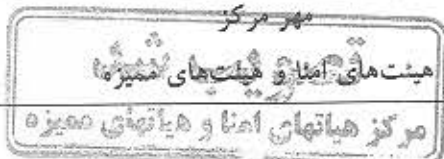 مهر مرکز
هیئت‌های امنا و هیئت‌های ممیزه
مرکز هیاتهای امنا و هیاتهای ممیزه